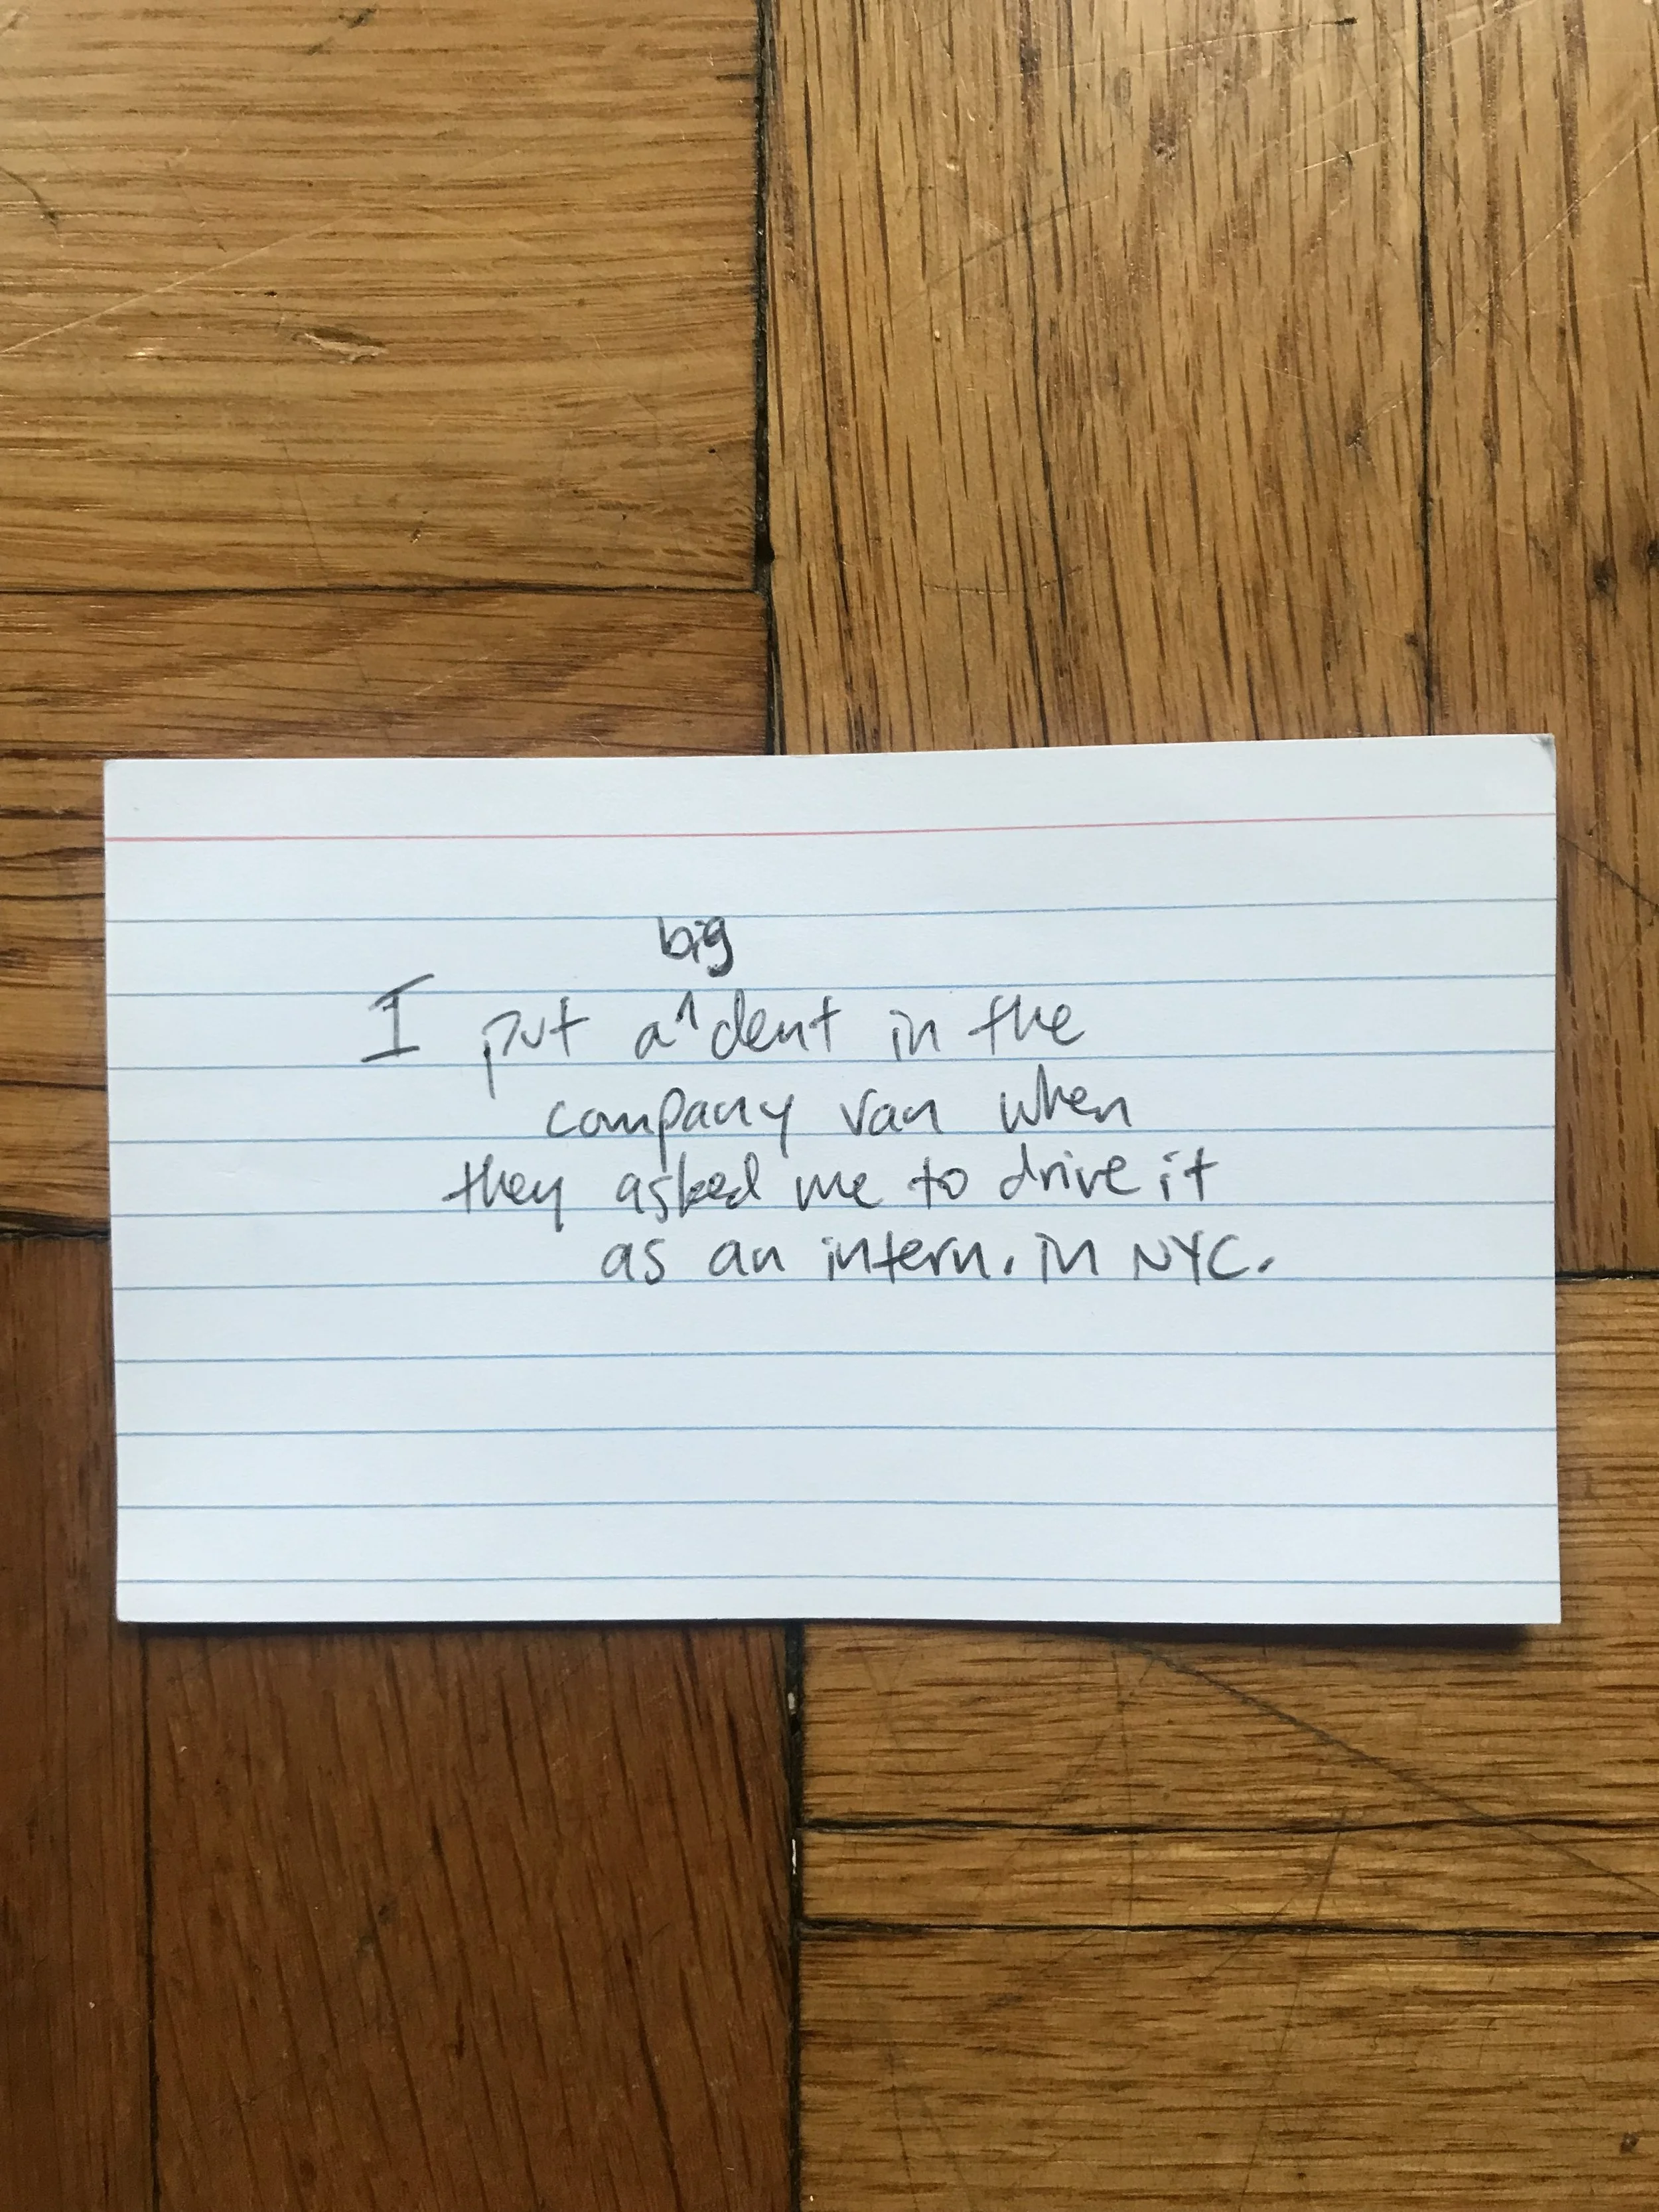 big
I put a^dent in the
company van when
they asked me to drive it
as an intern. in NYC.